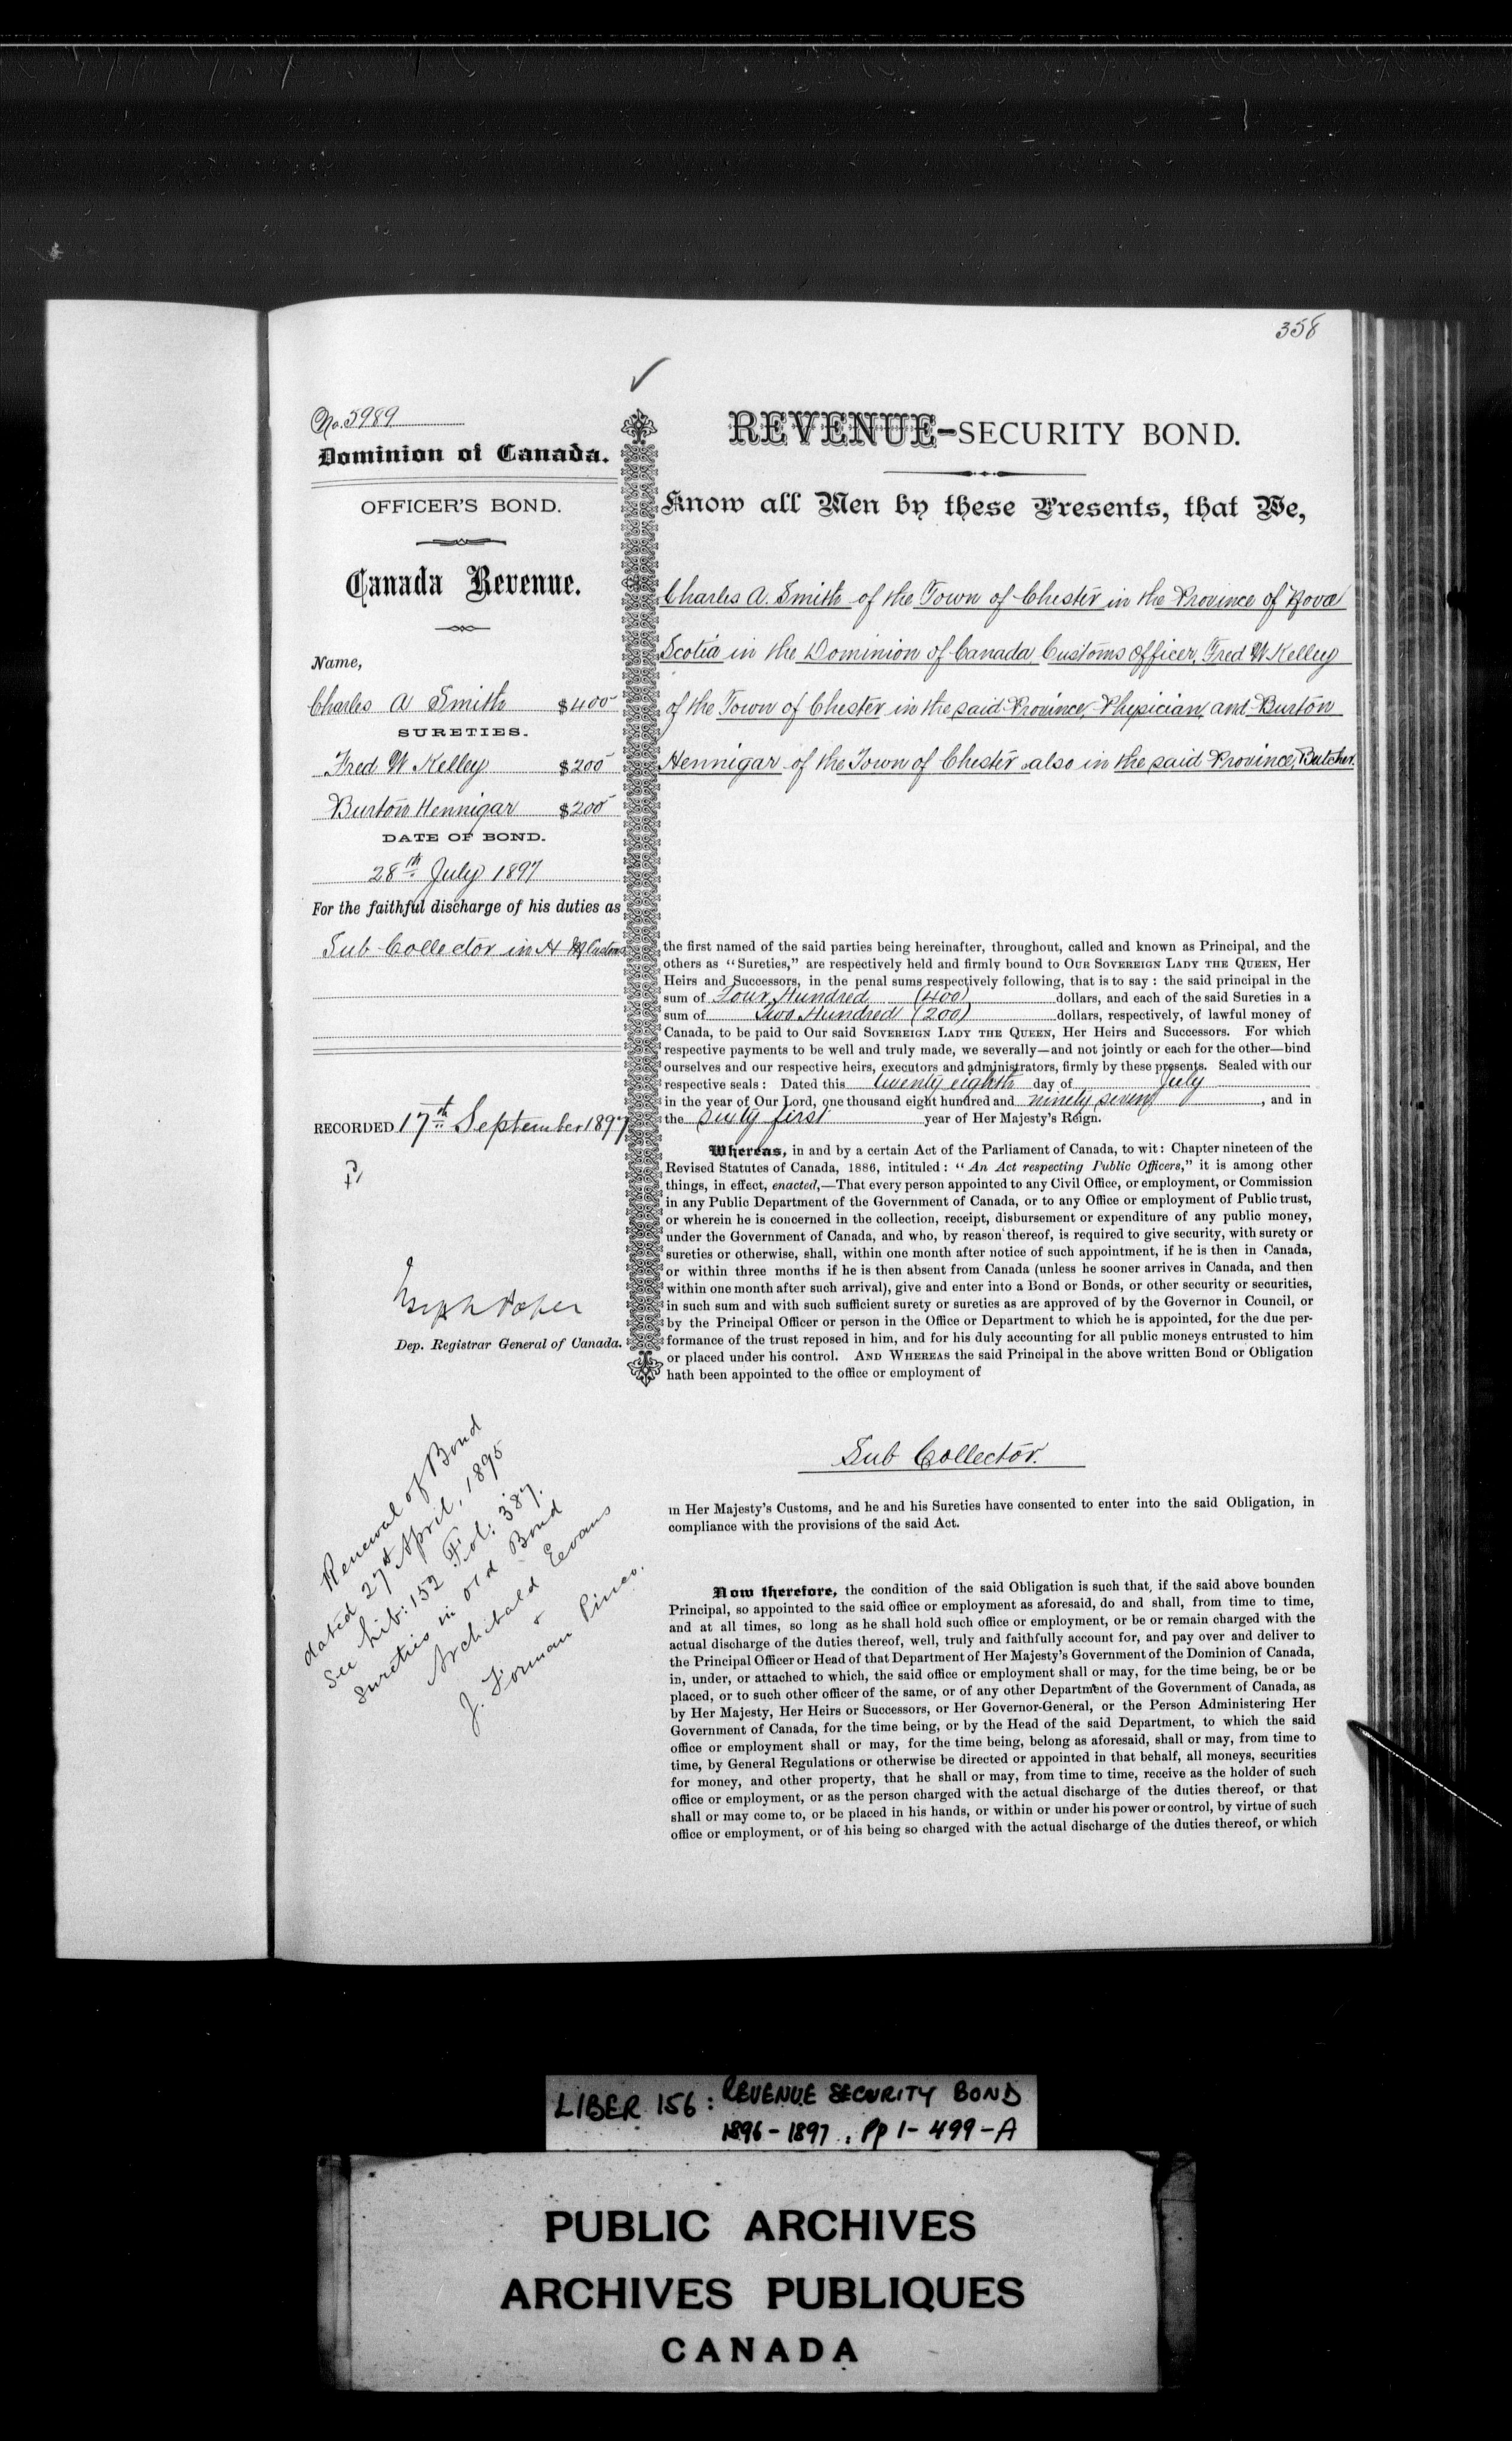 358
No. 5989
Dominion of Canada.
OFFICER'S BOND.
Canada Revenue.
Name,
Charles A Smith $400
SURETIES.
Fred W Kelley $200
Burton Hennigar $200
DATE OF BOND.
28th July 1897
For the faithful discharge of his duties as
Sub Collector in H M Customs
RECORDED 17th September 1897
Joseph Pope
Dep. Registrar General of Canada.
Renewal of Bond
dated 27th April, 1895
See Lib: 152 Fol: 387.
Sureties in old Bond
Archibald Evans
+
J. Forman Pineo.
REVENUE-SECURITY BOND.
Know all Men by these Presents, that We,
Charles A. Smith of the Town of Chester in the Province of Nova
Scotia in the Dominion of Canada Customs Officer, Fred W Kelley
of the Town of Chester in the said Province, Physician, and Burton
Hennigar of the Town of Chester also in the said Province, Butcher.
the first named of the said parties being hereinafter, throughout, called and known as Principal, and the
others as "Sureties," are respectively held and firmly bound to OUR SOVEREIGN LADY THE QUEEN, Her
Heirs and Successors, in the penal sums respectively following, that is to say : the said principal in the
sum of Four Hundred (400) dollars, and each of the said Sureties in a
sum of Two Hundred (200) dollars, respectively, of lawful money of
Canada, to be paid to Our said SOVEREIGN LADY THE QUEEN, Her Heirs and Successors. For which
respective payments to be well and truly made, we severally—and not jointly or each for the other—bind
ourselves and our respective heirs, executors and administrators, firmly by these presents. Sealed with our
respective seals : Dated this twenty eighth day of July
in the year of Our Lord, one thousand eight hundred and ninety seven, and in
the sixty first year of Her Majesty's Reign.
Whereas, in and by a certain Act of the Parliament of Canada, to wit: Chapter nineteen of the
Revised Statutes of Canada, 1886, intituled : "An Act respecting Public Officers," it is among other
things, in effect, enacted,—That every person appointed to any Civil Office, or employment, or Commission
in any Public Department of the Government of Canada, or to any Office or employment of Public trust,
or wherein he is concerned in the collection, receipt, disbursement or expenditure of any public money,
under the Government of Canada, and who, by reason thereof, is required to give security, with surety or
sureties or otherwise, shall, within one month after notice of such appointment, if he is then in Canada,
or within three months if he is then absent from Canada (unless he sooner arrives in Canada, and then
within one month after such arrival), give and enter into a Bond or Bonds, or other security or securities,
in such sum and with such sufficient surety or sureties as are approved of by the Governor in Council, or
by the Principal Officer or person in the Office or Department to which he is appointed, for the due per-
formance of the trust reposed in him, and for his duly accounting for all public moneys entrusted to him
or placed under his control. AND WHEREAS the said Principal in the above written Bond or Obligation
hath been appointed to the office or employment of
Sub Collector.
in Her Majesty's Customs, and he and his Sureties have consented to enter into the said Obligation, in
compliance with the provisions of the said Act.
Now therefore, the condition of the said Obligation is such that, if the said above bounden
Principal, so appointed to the said office or employment as aforesaid, do and shall, from time to time,
and at all times, so long as he shall hold such office or employment, or be or remain charged with the
actual discharge of the duties thereof, well, truly and faithfully account for, and pay over and deliver to
the Principal Officer or Head of that Department of Her Majesty's Government of the Dominion of Canada,
in, under, or attached to which, the said office or employment shall or may, for the time being, be or be
placed, or to such other officer of the same, or of any other Department of the Government of Canada, as
by Her Majesty, Her Heirs or Successors, or Her Governor-General, or the Person Administering Her
Government of Canada, for the time being, or by the Head of the said Department, to which the said
office or employment shall or may, for the time being, belong as aforesaid, shall or may, from time to
time, by General Regulations or otherwise be directed or appointed in that behalf, all moneys, securities
for money, and other property, that he shall or may, from time to time, receive as the holder of such
office or employment, or as the person charged with the actual discharge of the duties thereof, or that
shall or may come to, or be placed in his hands, or within or under his power or control, by virtue of such
office or employment, or of his being so charged with the actual discharge of the duties thereof, or which
LIBER 156 : REVENUE SECURITY BOND
1896-1897 : Pp 1-499-A
PUBLIC ARCHIVES
ARCHIVES PUBLIQUES
CANADA